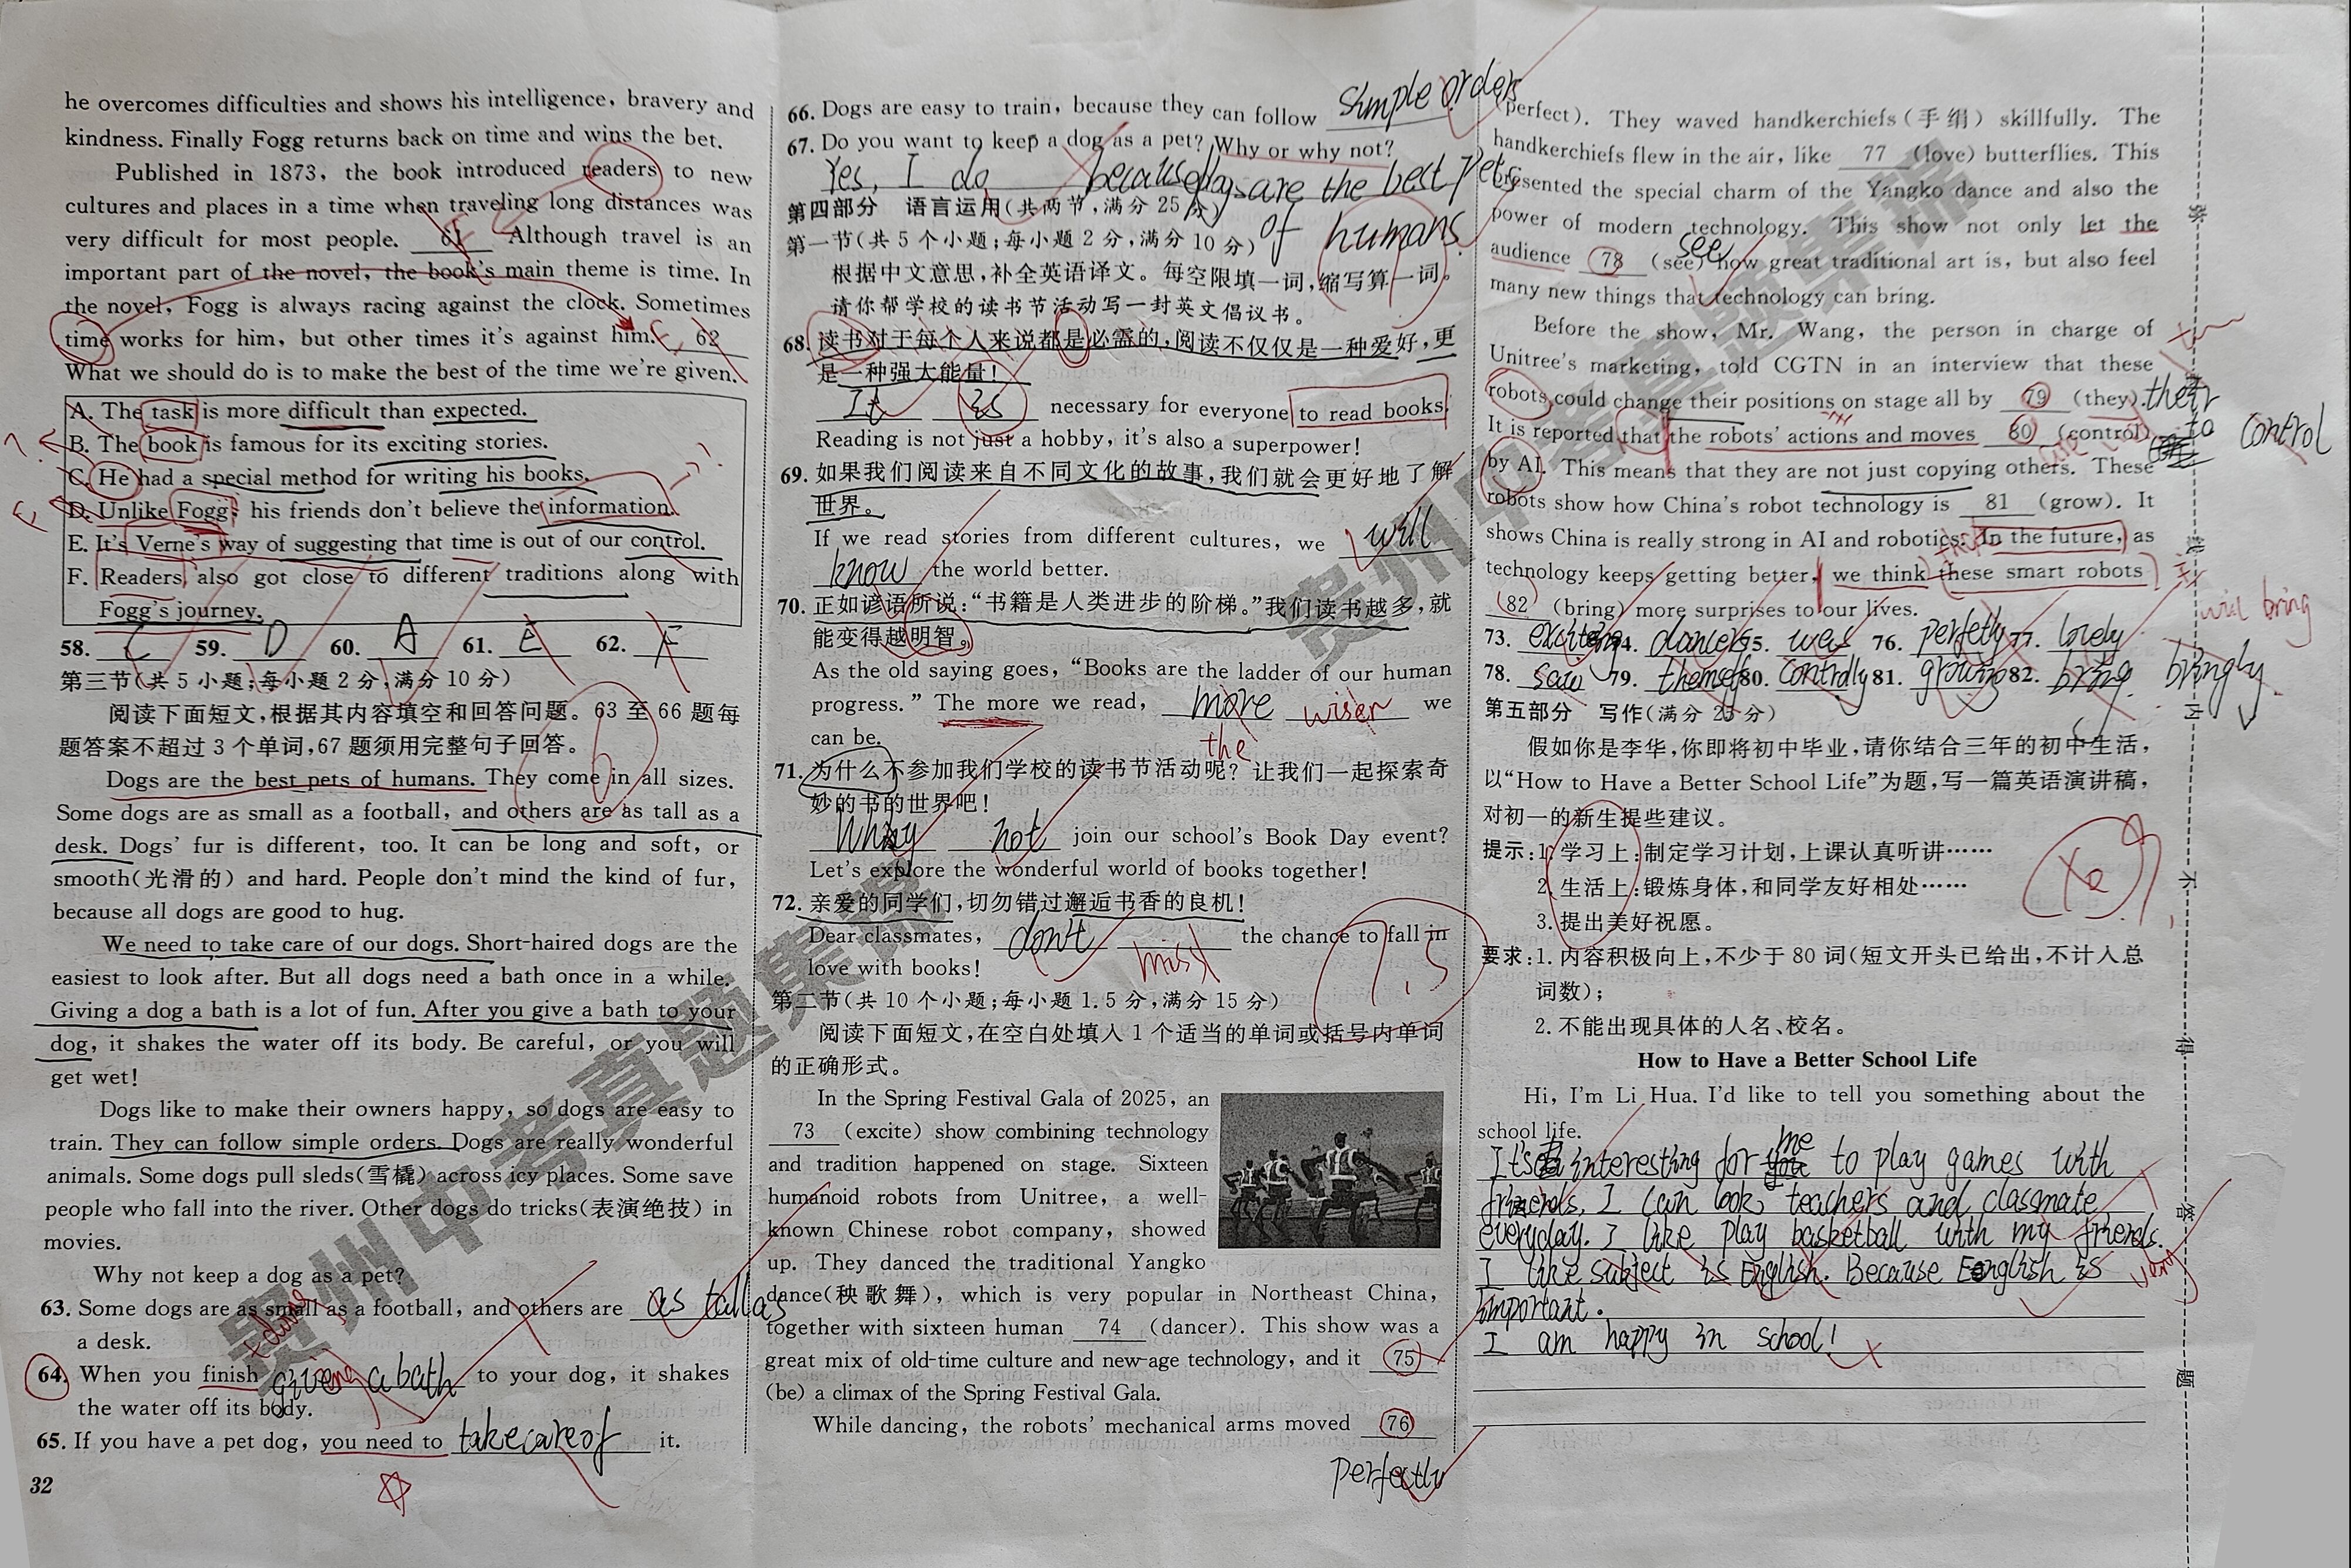 he overcomes difficulties and shows his intelligence, bravery and
kindness. Finally Fogg returns back on time and wins the bet.
Published in 1873, the book introduced readers to new
cultures and places in a time when traveling long distances was
very difficult for most people. 61 Although travel is an
important part of the novel, the book's main theme is time. In
the novel, Fogg is always racing against the clock. Sometimes
time works for him, but other times it's against him. 62
What we should do is to make the best of the time we're given.
A. The task is more difficult than expected.
B. The book is famous for its exciting stories.
C. He had a special method for writing his books.
D. Unlike Fogg, his friends don't believe the information.
E. It's Verne's way of suggesting that time is out of our control.
F. Readers also got close to different traditions along with
Fogg's journey.
58. C 59. D 60. A 61. E 62. F
第三节(共 5 个小题;每小题 2 分,满分 10 分)
阅读下面短文,根据其内容填空和回答问题。63 至 66 题每
题答案不超过 3 个单词,67 题须用完整句子回答。
6
Dogs are the best pets of humans. They come in all sizes.
Some dogs are as small as a football, and others are as tall as a
desk. Dogs' fur is different, too. It can be long and soft, or
smooth(光滑的) and hard. People don't mind the kind of fur,
because all dogs are good to hug.
We need to take care of our dogs. Short-haired dogs are the
easiest to look after. But all dogs need a bath once in a while.
Giving a dog a bath is a lot of fun. After you give a bath to your
dog, it shakes the water off its body. Be careful, or you will
get wet!
Dogs like to make their owners happy, so dogs are easy to
train. They can follow simple orders. Dogs are really wonderful
animals. Some dogs pull sleds(雪橇) across icy places. Some save
people who fall into the river. Other dogs do tricks(表演绝技) in
movies.
Why not keep a dog as a pet?
63. Some dogs are as small as a football, and others are as tall as
a desk.
64. When you finish given a bath to your dog, it shakes
the water off its body.
65. If you have a pet dog, you need to take care of it.
32
66. Dogs are easy to train, because they can follow simple orders
67. Do you want to keep a dog as a pet? Why or why not?
Yes, I do, because dogs are the best pets
of humans.
第四部分 语言运用(共两节,满分 25 分)
第一节(共 5 个小题;每小题 2 分,满分 10 分)
根据中文意思,补全英语译文。每空限填一词,缩写算一词。
请你帮学校的读书节活动写一封英文倡议书。
68. 读书对于每个人来说都是必需的,阅读不仅仅是一种爱好,更
是一种强大能量!
It is necessary for everyone to read books.
Reading is not just a hobby, it's also a superpower!
69. 如果我们阅读来自不同文化的故事,我们就会更好地了解
世界。
If we read stories from different cultures, we will
know the world better.
70. 正如谚语所说:“书籍是人类进步的阶梯。”我们读书越多,就
能变得越明智。
As the old saying goes, “Books are the ladder of our human
progress.” The more we read, more wiser we
the
can be.
71. 为什么不参加我们学校的读书节活动呢? 让我们一起探索奇
妙的书的世界吧!
Why not join our school's Book Day event?
Let's explore the wonderful world of books together!
72. 亲爱的同学们,切勿错过邂逅书香的良机!
Dear classmates, don't miss the chance to fall in
love with books!
7.5
第二节(共 10 个小题;每小题 1.5 分,满分 15 分)
阅读下面短文,在空白处填入 1 个适当的单词或括号内单词
的正确形式。
In the Spring Festival Gala of 2025, an
73 (excite) show combining technology
and tradition happened on stage. Sixteen
humanoid robots from Unitree, a well-
known Chinese robot company, showed
up. They danced the traditional Yangko
dance(秧歌舞), which is very popular in Northeast China,
together with sixteen human 74 (dancer). This show was a
great mix of old-time culture and new-age technology, and it 75
(be) a climax of the Spring Festival Gala.
While dancing, the robots' mechanical arms moved 76
perfectly
(perfect). They waved handkerchiefs(手绢) skillfully. The
handkerchiefs flew in the air, like 77 (love) butterflies. This
presented the special charm of the Yangko dance and also the
power of modern technology. This show not only let the
see
audience 78 (see) how great traditional art is, but also feel
many new things that technology can bring.
Before the show, Mr. Wang, the person in charge of
Unitree's marketing, told CGTN in an interview that these
robots could change their positions on stage all by 79 (they). their
It is reported that the robots' actions and moves 80 (control) to control
by AI. This means that they are not just copying others. These
robots show how China's robot technology is 81 (grow). It
shows China is really strong in AI and robotics. In the future, as
technology keeps getting better, we think these smart robots
82 (bring) more surprises to our lives.
will bring
73. exciting 74. dancers 75. was 76. perfectly 77. lovely
78. saw 79. themself 80. controlly 81. growing 82. bring bringly
第五部分 写作(满分 25 分)
假如你是李华,你即将初中毕业,请你结合三年的初中生活,
以“How to Have a Better School Life”为题,写一篇英语演讲稿,
对初一的新生提些建议。
提示:1. 学习上:制定学习计划,上课认真听讲……
2. 生活上:锻炼身体,和同学友好相处……
3. 提出美好祝愿。
要求:1. 内容积极向上,不少于 80 词(短文开头已给出,不计入总
词数);
2. 不能出现具体的人名、校名。
How to Have a Better School Life
Hi, I'm Li Hua. I'd like to tell you something about the
school life.
It's interesting for me to play games with
friends. I can look teachers and classmate
everyday. I like play basketball with my friends.
I like subject is English. Because English is
very
important.
I am happy in school!
弥 线 内 不 得 答 题
贵州中考真题集锦
贵州中考真题集锦